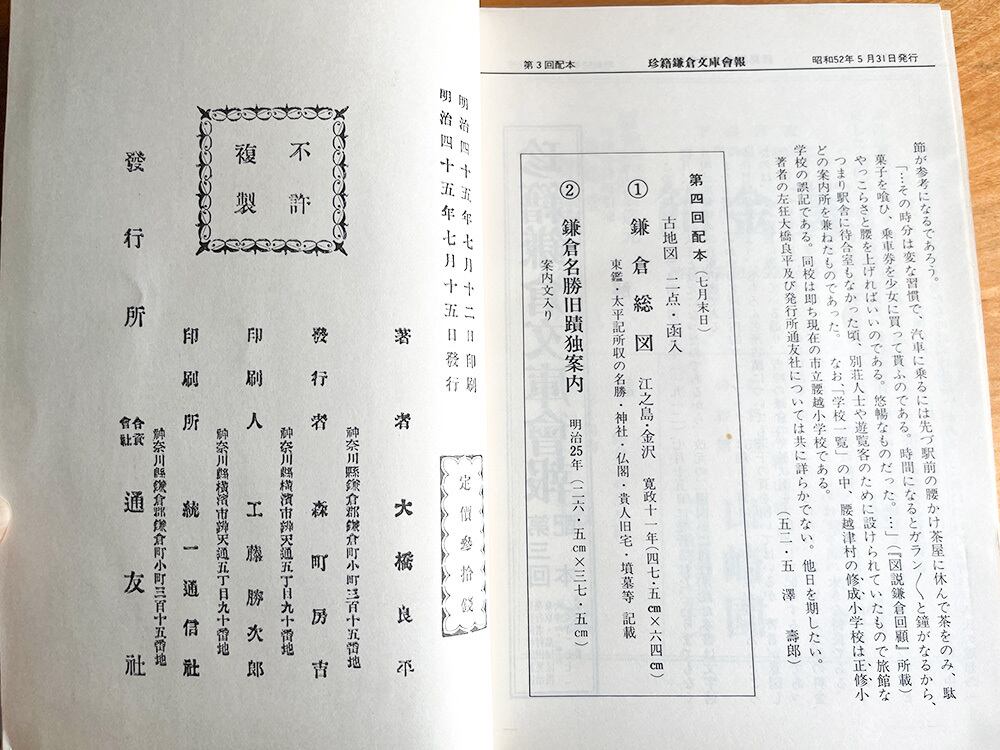 第3回配本
珍籍鎌倉文庫會報
昭和52年5月31日発行
節が参考になるであろう。
「…その時分は変な習慣で、汽車に乗るには先づ駅前の腰かけ茶屋に休んで茶をのみ、駄
菓子を喰ひ、乗車券を少女に買って貰ふのである。時間になるとガラン〳〵と鐘がなるから、
やっこらさと腰を上げればいいのである。悠暢なものだった。…」(『図説鎌倉回顧』所載)
つまり駅舎に待合室もなかった頃、別荘人士や遊覧客のために設けられていたもので旅館な
どの案内所を兼ねたものであった。 なお、「学校一覧」の中、腰越津村の修成小学校は正修小
学校の誤記である。同校は即ち現在の市立腰越小学校である。
著者の左狂大橋良平及び発行所通友社については共に詳らかでない。他日を期したい。
(五二・五 澤 壽郎)
第四回配本(七月末日)
古地図 二点・函入
① 鎌倉総図 江之島・金沢 寛政十一年(四七・五㎝×六四㎝)
東鑑・太平記所収の名勝・神社・仏閣・貴人旧宅・墳墓等 記載
② 鎌倉名勝旧蹟独案内 明治25年(二六・五㎝×三七・五㎝)
案内文入り
明治四十五年七月十二日印刷
明治四十五年七月十五日發行
定價參拾錢
不許
複製
著者 大橋良平
神奈川縣鎌倉郡鎌倉町小町三百十五番地
發行者 森町房吉
神奈川縣横濱市辨天通五丁目九十番地
印刷人 工藤勝次郎
神奈川縣横濱市辨天通五丁目九十番地
印刷所 統一通信社
神奈川縣鎌倉郡鎌倉町小町三百十五番地
發行所 合資會社 通友社